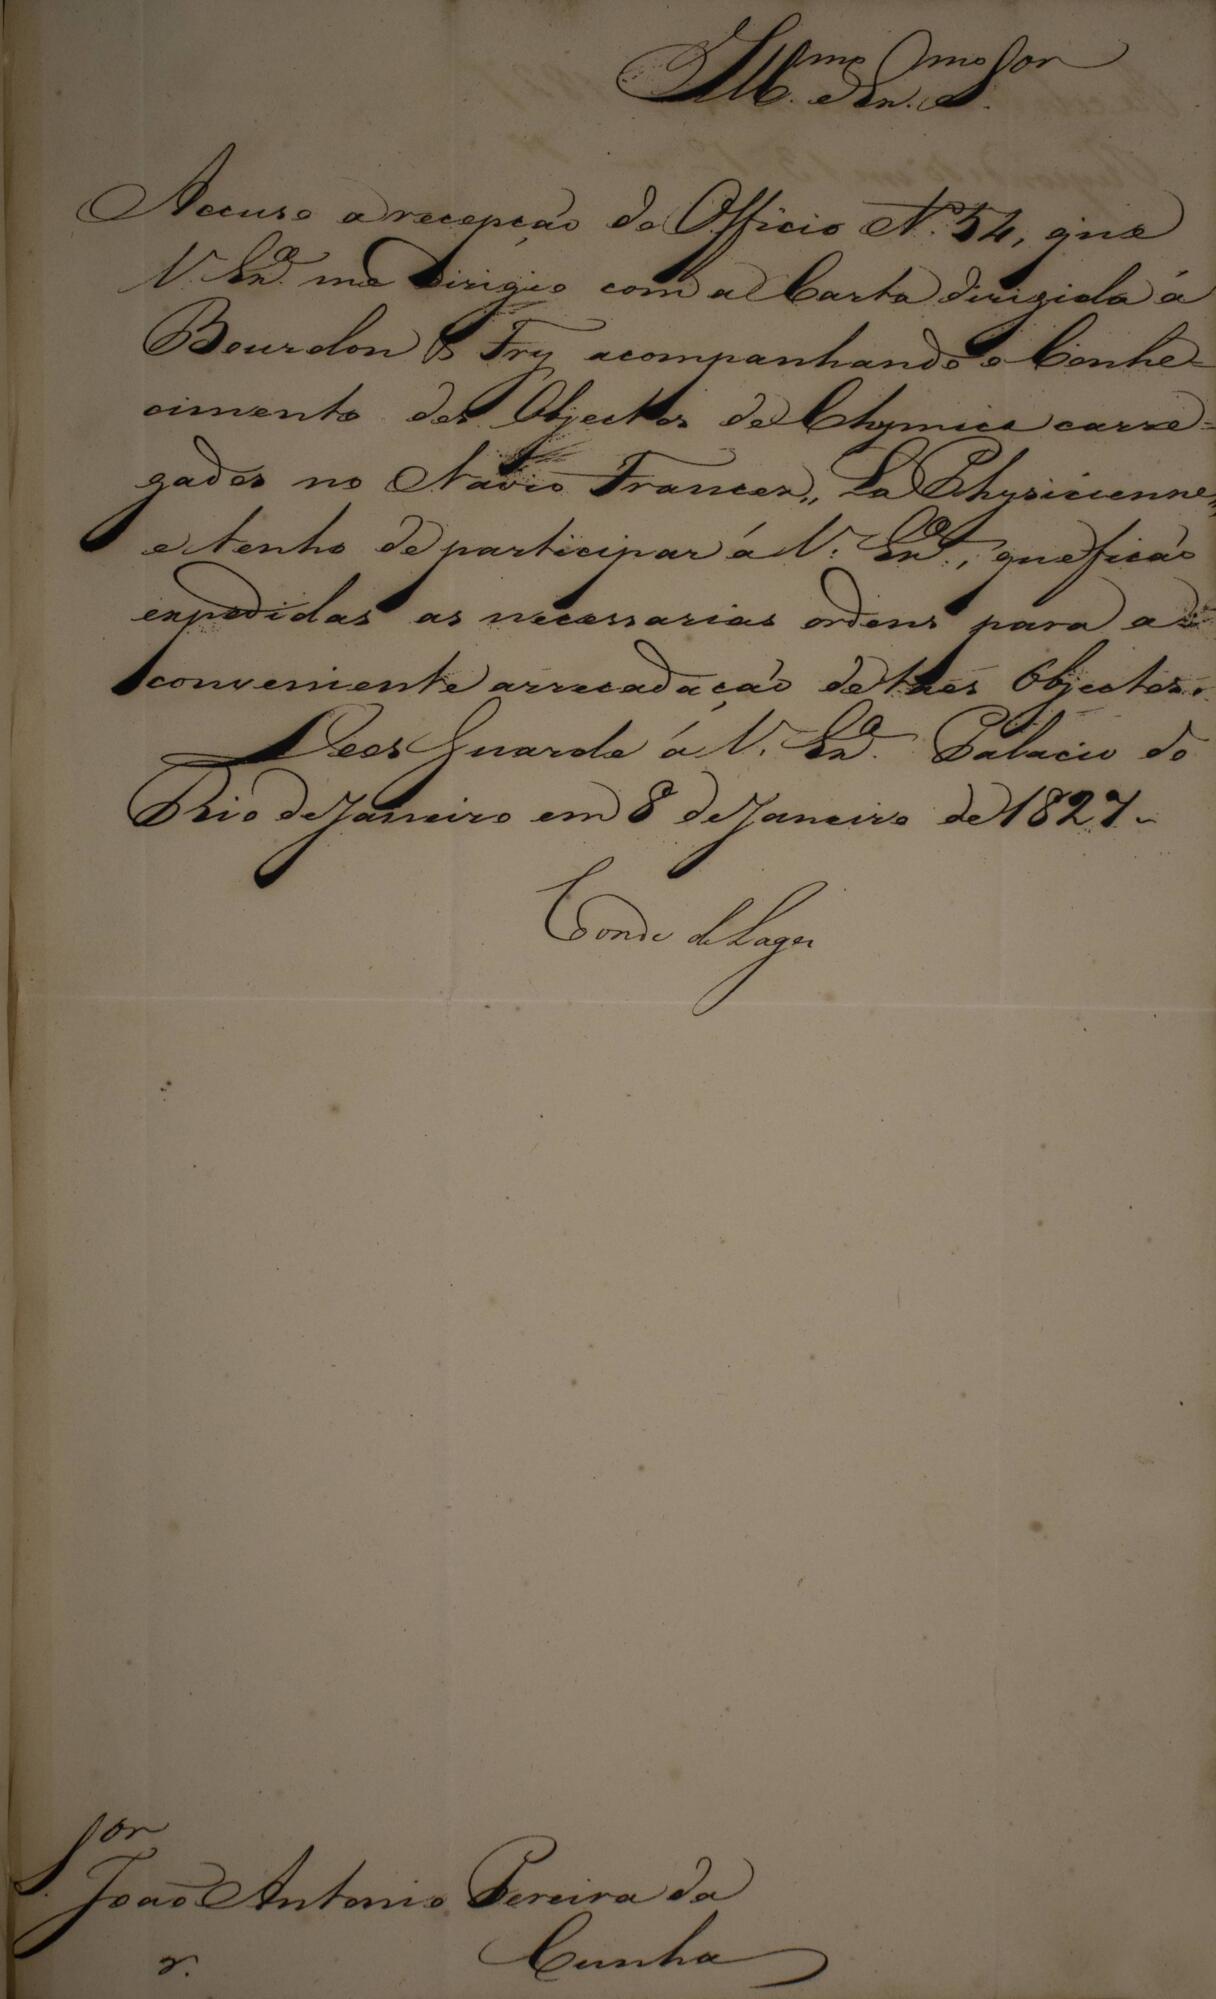 Ill.mo e Ex.mo S.or
Accuso a recepção do Officio N.º 54, que
V. Ex.ª me dirigio com a Carta dirigida á
Bourdon & Fry acompanhando o Conhe=
cimento dos Objectos de Chymica carre=
gados no Navio Francez,, La Physicienne,,
e tenho de participar á V. Ex.ª, que ficão
expedidas as necessarias ordens para a
conveniente arrecadação de taes Objectos.
Deos Guarde á V. Ex.ª Palacio do
Rio de Janeiro em 8 de Janeiro de 1827.
Conde de Lages
S.or João Antonio Pereira da
Cunha